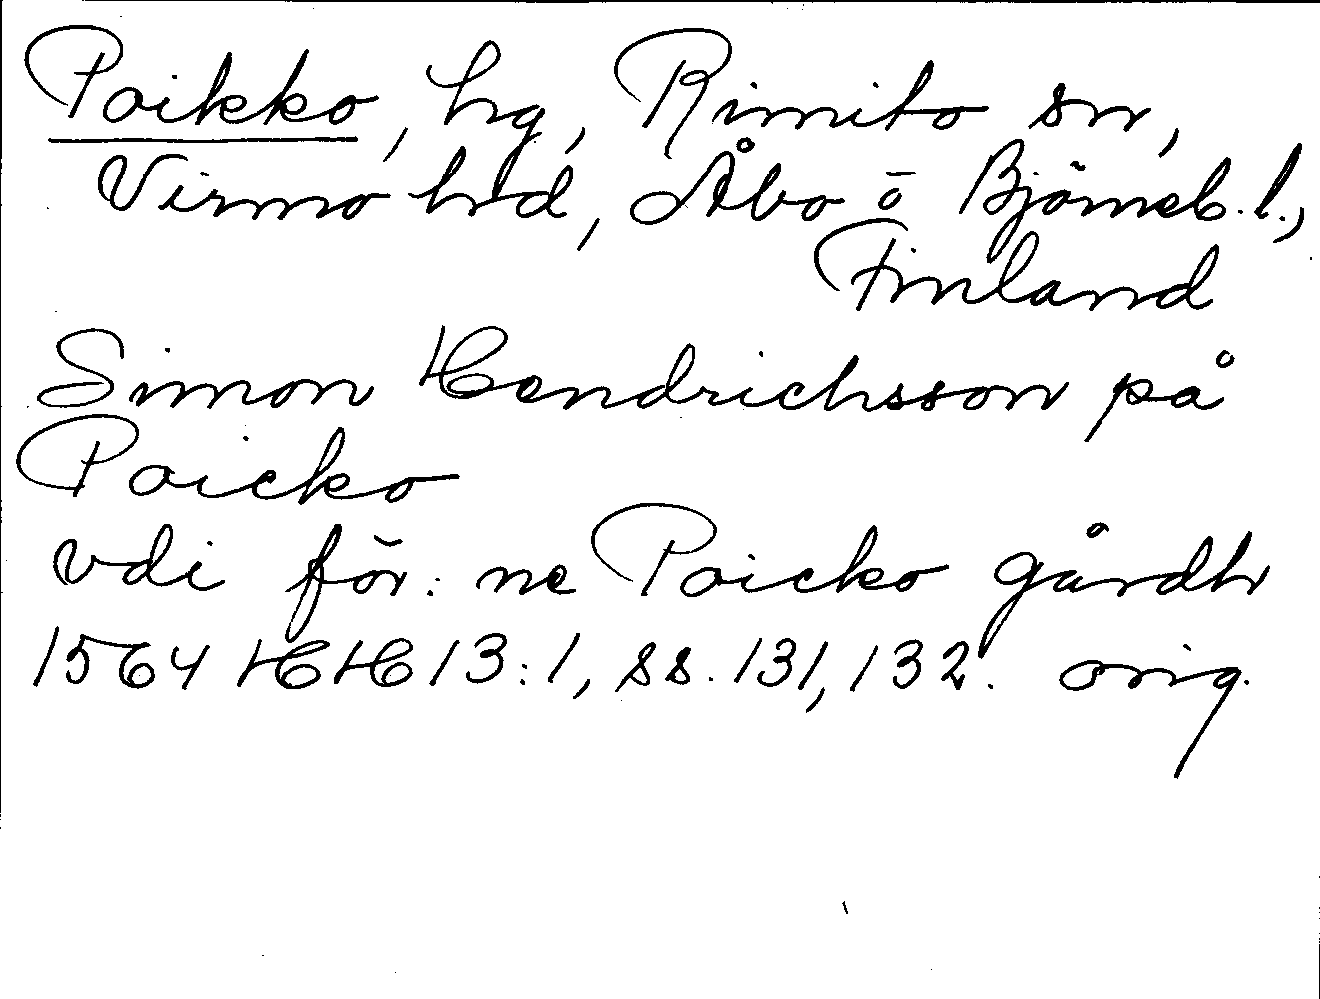 Poikko, hg, Rimito sn,
Virmo hd, Åbo o Björneb. l.,
Finland
Simon Hendrichsson på
Poicko
vdi för: ne Poicko gårdh
1564 HH 13:1, ss. 131, 132. orig.